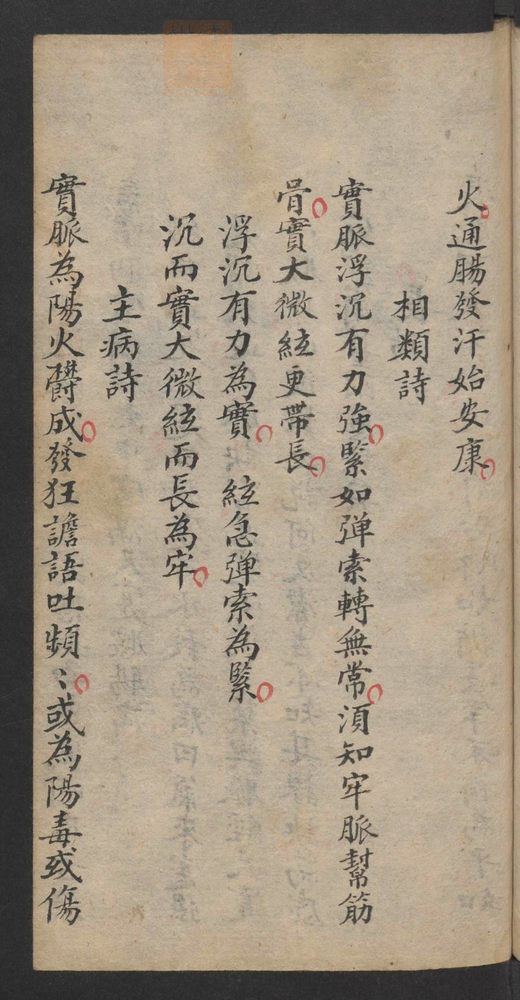 火通腸發汗始安康
相類詩
實脈浮沉有力強緊如弹索轉無常湏知牢脈幫筋
骨實大微絃更帶長
浮沉有力為實絃急弹索為緊
沉而實大微絃而長為牢
主病詩
實脈為陽火欝成發狂譫語吐頻〻或為陽毒或傷